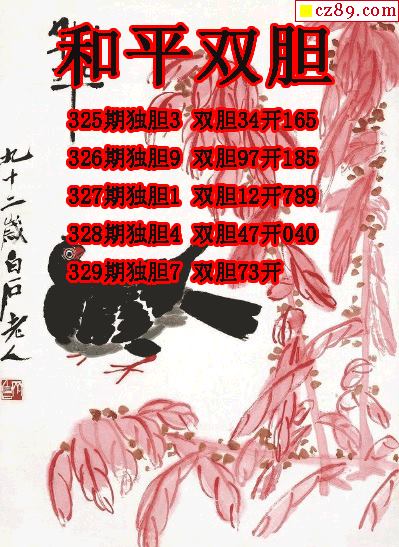 cz89.com
和平双胆
325期独胆3 双胆34开165
326期独胆9 双胆97开185
327期独胆1 双胆12开789
328期独胆4 双胆47开040
329期独胆7 双胆73开
九十二岁白石老人